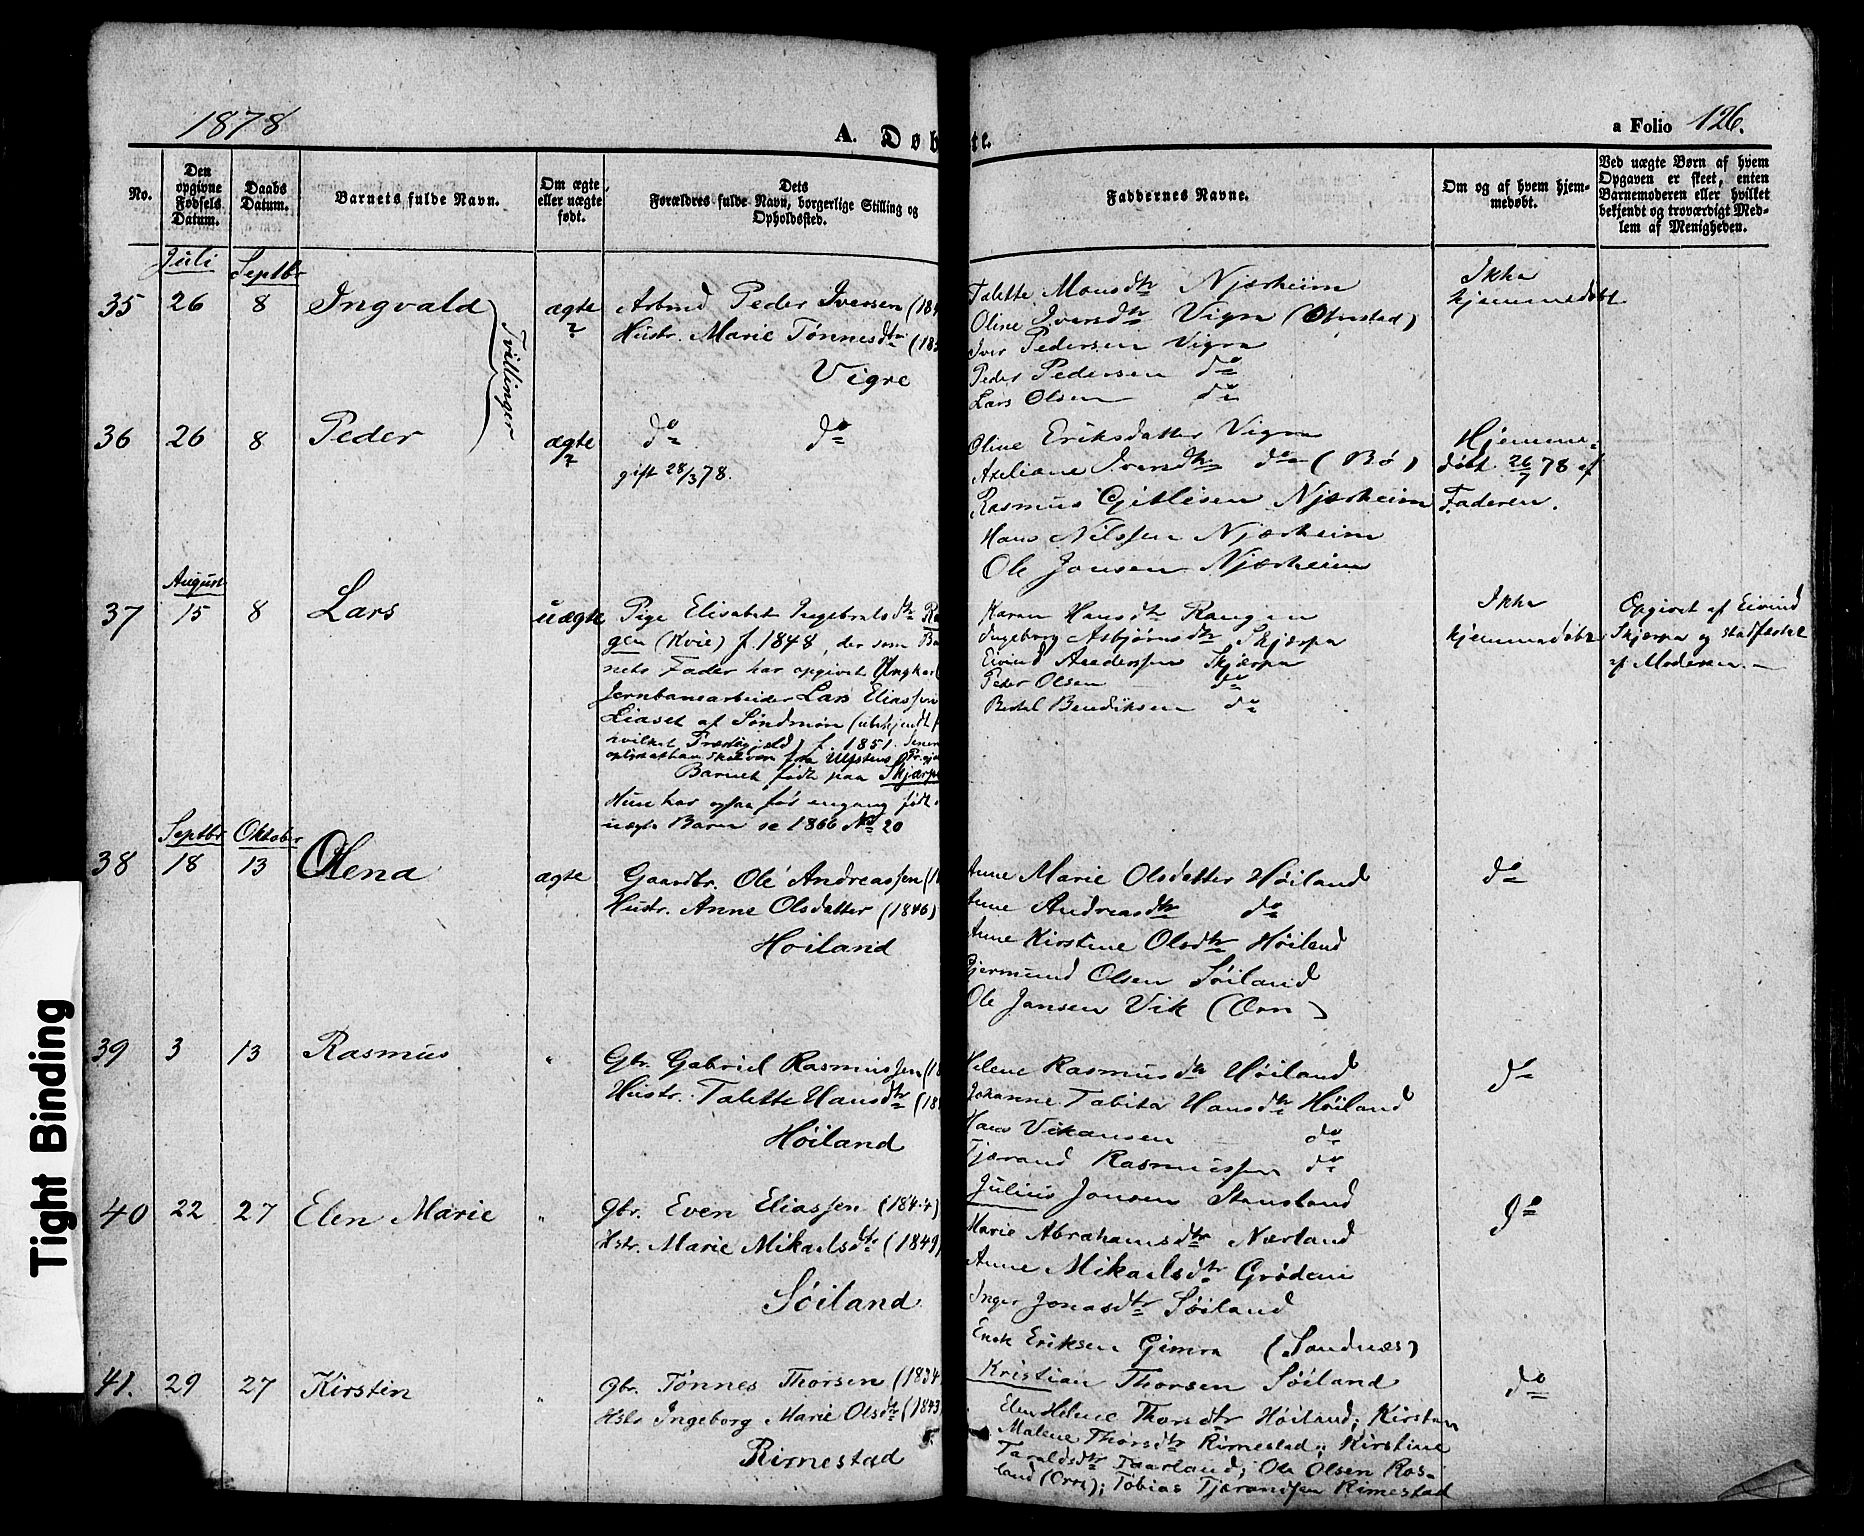 1878
A. Døb te.
a Folio 126.
No.
Den opgivne Fødsels Datum.
Daabs Datum.
Barnets fulde Navn.
Om ægte eller uægte født.
Dets Forældres fulde Navn, borgerlige Stilling og Opholdssted.
Faddernes Navne.
Om og af hvem hjemmedøbt.
Ved uægte Børn af hvem Opgaven er skeet, enten Barnemoderen eller hvilket bekjendt og troværdigt Medlem af Menigheden.
Juli
Septbr
35 26 8 Ingvald
Tvillinger
ægte
Arbmd Peder Iversen (184
Hustr. Marie Tønnesdtr (185
Vigre
Talette Monsdtr Njærheim
Oline Iversdtr Vigre (Obrestad)
Iver Pedersen Vigre
Peder Pedersen do
Lars Olsen do
Ikke
hjemmedøbt
36 26 8 Peder
ægte
do do
gift 28/3 78.
Oline Eriksdatter Vigre
Axeliane Iversdtr do (Bø)
Rasmus Gitlesen Njærheim
Hans Nilssen Njærheim
Ole Jonsen Njærheim
Hjemme-
døbt 26/7 78 af
Faderen.
August
37 15 8 Lars
uægte
Pige Elisabet Ingebretsdtr
gen (Kvie) f. 1848, der som Ba
nets Fader har opgivet Ungkarl
Jernbanearbeider Lars Eliassen
Liaset af Søndmør (ubekjendt
hvilket Præstegjeld) f. 1851. Senere
Barnet født paa Skjærpe
Hun har ogsaa før engang født
uægte Barn se 1866 No 20
Karen Hansdtr Raugen
Ingeborg Asbjørnsdtr Skjærpe
Eivind Andersen Skjærpe
Peder Olsen do
Bertel Bendiksen do
Ikke
hjemmedøbt
Opgivet af Eivind
Skjærpe og stadfæstet
af Moderen.
Septbr
Oktober
38 18 13 Olena
ægte
Gaardbr. Ole Andreassen (1
Hustr. Anne Olsdatter (1846)
Høiland
Anne Marie Olsdatter Høiland
Anne Andreasdtr do
Anne Kirstine Olsdtr Høiland
Gjermund Olsen Søiland
Ole Jansen Vik (Orre)
do
39 3 13 Rasmus "
Gbr. Gabriel Rasmussen (18
Hustr. Talette Hansdtr (18
Høiland
Helene Rasmusdtr Høiland
Johanne Tabita Hansdtr Høiland
Hans Vikansen do
Tjærand Rasmussen do
Julius Jonsen Stangeland
do
40 22 27 Elen Marie "
Gbr. Even Eliassen (1844)
Hstr. Marie Mikaelsdtr (1849)
Søiland
Marie Abrahamsdtr Nærland
Anne Mikaelsdtr Grødem
Inger Jonasdtr Søiland
Enok Eriksen Gimre (Sandnæs)
Kristian Thorsen Søiland
do
41. 29 27 Kirstin "
Gbr. Tønnes Thorsen (1834
Hstr Ingeborg Marie Olsdtr (1843)
Rimestad
Elen Helene Thorsdtr Høiland; Kirsten
Malene Thorsdtr Rimestad; Kirstine
Taraldsdtr Taarland; Ole Olsen Ros-
land (Orre); Tobias Tjærandsen Rimestad
do
Tight Binding